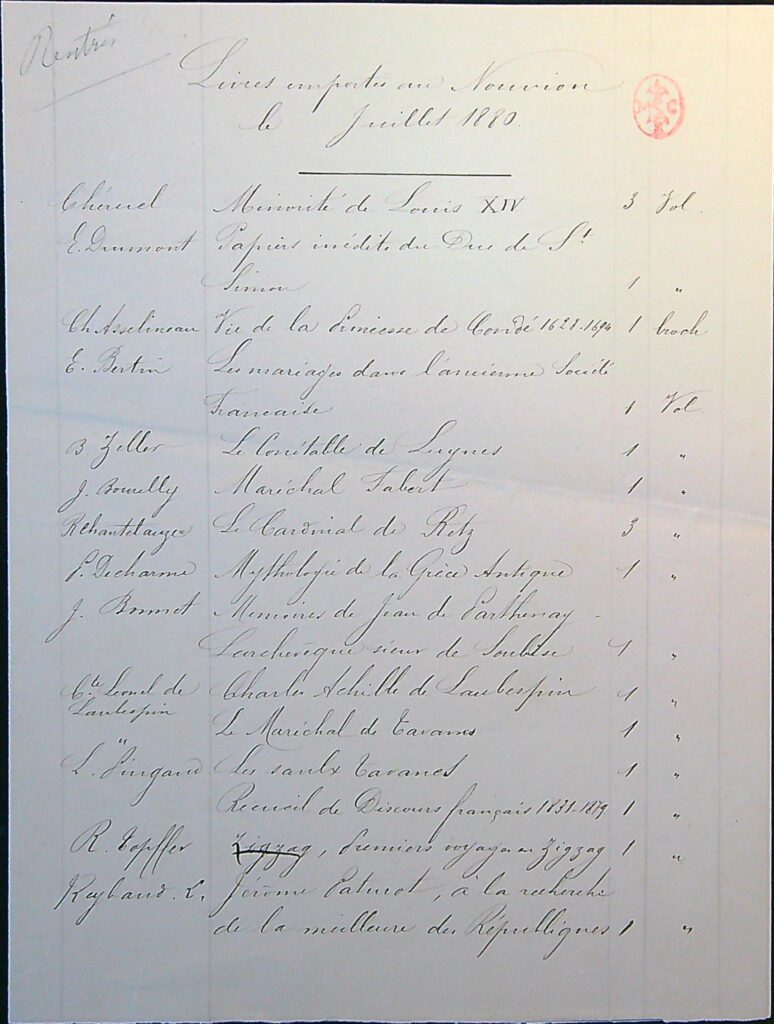 Rentrés
Livres emportés au Nouvion
le Juillet 1880.
Chéruel Minorité de Louis XIV 3 Vol.
E. Drumont Papiers inédits du Duc de St
Simon 1 "
Ch Asselineau Vie de la Princesse de Condé 1628-1694 1 broch
E. Bertin Les mariages dans l'ancienne Société
Française 1 Vol
B. Zeller Le Connétable de Luynes 1 "
J. Bourelly Maréchal Fabert 1 "
R Chantelauze Le Cardinal de Retz 3 "
P. Decharme Mythologie de la Grèce Antique 1 "
J. Bonnet Memoires de Jean de Parthenay -
Larchevêque sieur de Soubise 1 "
Cte Léonel de Charles Achille de Laubespin 1 "
Laubespin
" Le Maréchal de Tavanes 1 "
L. Pingaud Les saulx Tavanes 1 "
Recueil de Discours français 1831-1879 1 "
R. Topffer Zigzag, Premiers voyages en Zigzag 1 "
Reybaud. L. Jérôme Paturot, à la recherche
de la meilleure des Républiques 1 "